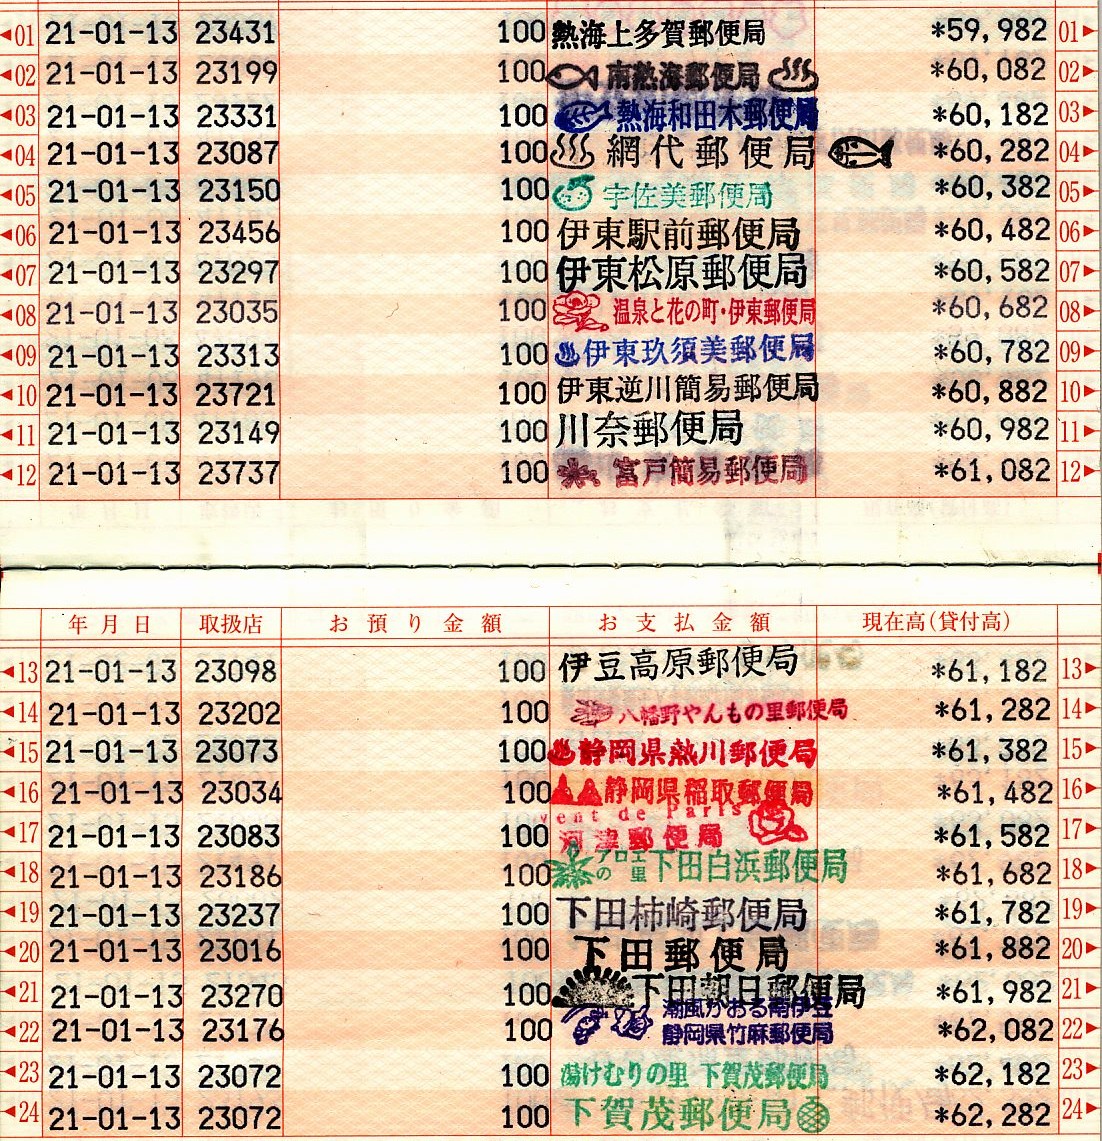 01 21-01-13 23431 100 熱海上多賀郵便局 *59,982 01
02 21-01-13 23199 100 南熱海郵便局 *60,082 02
03 21-01-13 23331 100 熱海和田木郵便局 *60,182 03
04 21-01-13 23087 100 網代郵便局 *60,282 04
05 21-01-13 23150 100 宇佐美郵便局 *60,382 05
06 21-01-13 23456 100 伊東駅前郵便局 *60,482 06
07 21-01-13 23297 100 伊東松原郵便局 *60,582 07
08 21-01-13 23035 100 温泉と花の町・伊東郵便局 *60,682 08
09 21-01-13 23313 100 伊東玖須美郵便局 *60,782 09
10 21-01-13 23721 100 伊東逆川簡易郵便局 *60,882 10
11 21-01-13 23149 100 川奈郵便局 *60,982 11
12 21-01-13 23737 100 富戸簡易郵便局 *61,082 12
年月日 取扱店 お預り金額 お支払金額 現在高(貸付高)
13 21-01-13 23098 100 伊豆高原郵便局 *61,182 13
14 21-01-13 23202 100 八幡野やんもの里郵便局 *61,282 14
15 21-01-13 23073 100 静岡県熱川郵便局 *61,382 15
16 21-01-13 23034 100 静岡県稲取郵便局 *61,482 16
vent de Paris
17 21-01-13 23083 100 河津郵便局 *61,582 17
18 21-01-13 23186 100 アロエの里 下田白浜郵便局 *61,682 18
19 21-01-13 23237 100 下田柿崎郵便局 *61,782 19
20 21-01-13 23016 100 下田郵便局 *61,882 20
21 21-01-13 23270 100 下田朝日郵便局 *61,982 21
潮風かおる南伊豆
22 21-01-13 23176 100 静岡県竹麻郵便局 *62,082 22
23 21-01-13 23072 100 湯けむりの里 下賀茂郵便局 *62,182 23
24 21-01-13 23072 100 下賀茂郵便局 *62,282 24